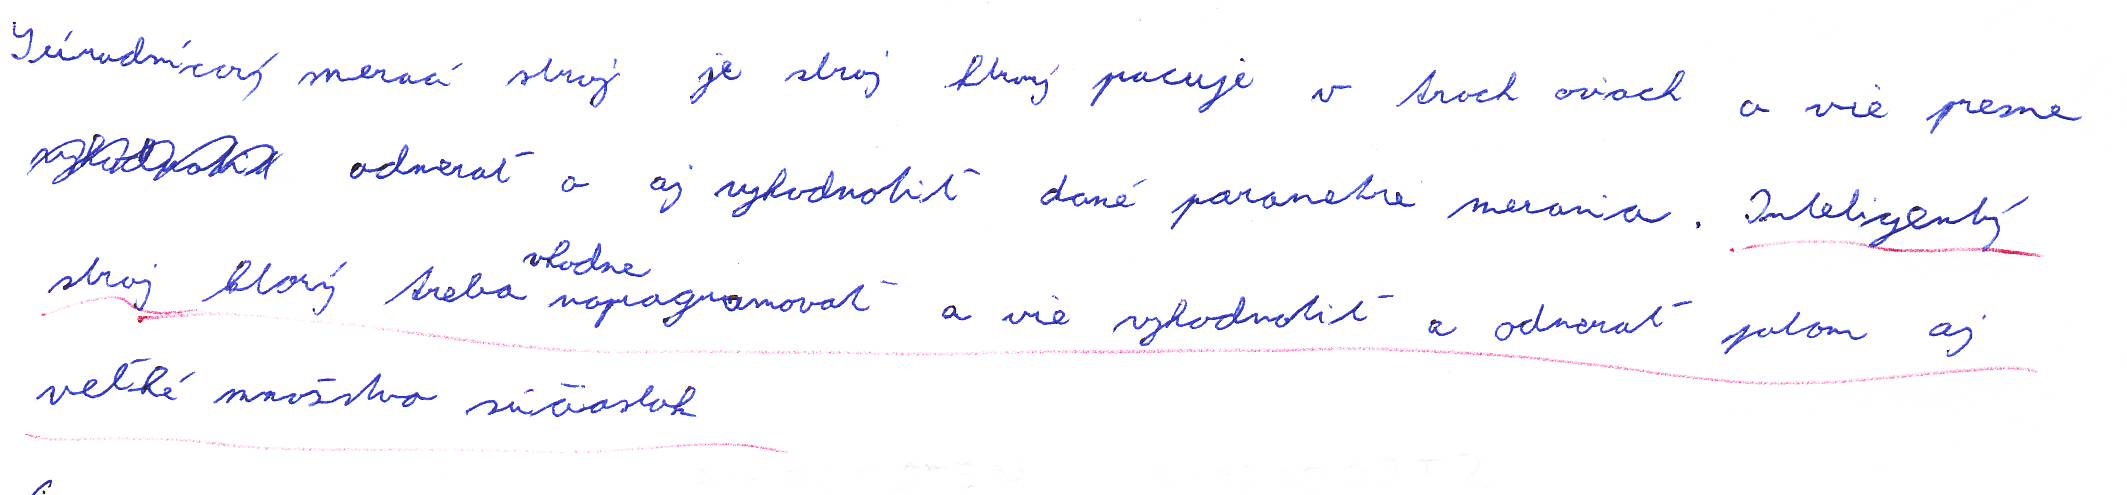 Súradnicový merací stroj je stroj ktorý pacuje v troch osiach a vie presne
odmerať a aj vyhodnotiť dané parametre merania. Inteligentný
stroj ktorý treba vhodne naprogramovať a vie vyhodnotiť a odmerať potom aj
veľké množstvo súčiastok